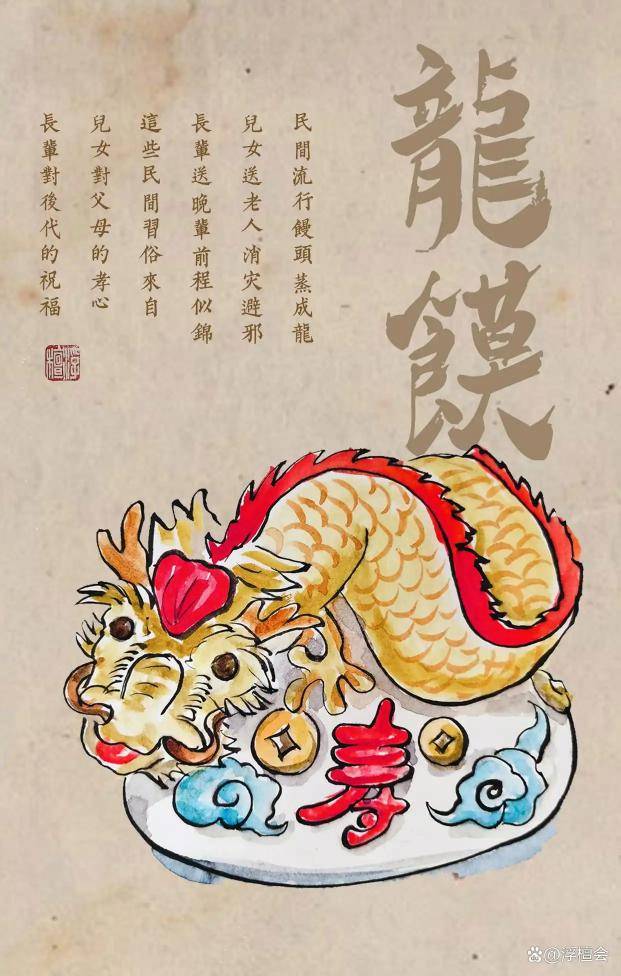 龍饃
民間流行饅頭蒸成龍
兒女送老人消灾避邪
長輩送晚輩前程似錦
這些民間習俗來自
兒女對父母的孝心
長輩對後代的祝福
壽
@浮檀会